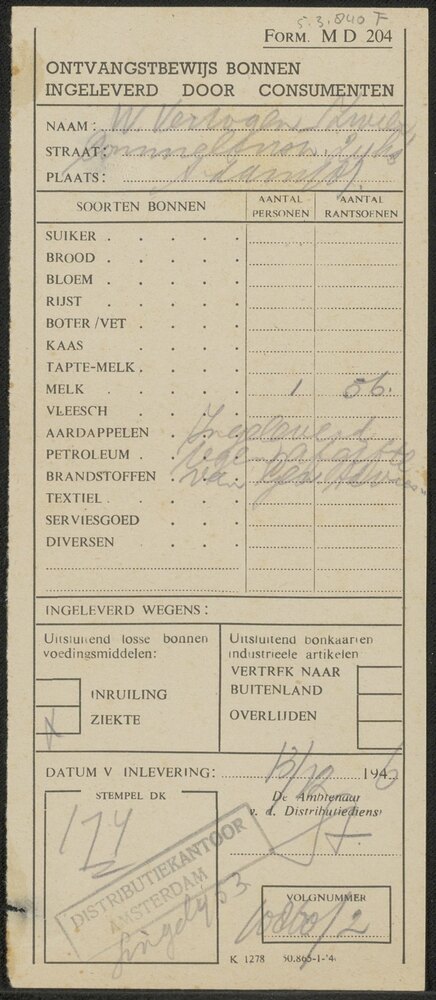 5.3.840 F
FORM. M D 204
ONTVANGSTBEWIJS BONNEN
INGELEVERD DOOR CONSUMENTEN
NAAM: W Verhogen
STRAAT:
PLAATS: Adam
SOORTEN BONNEN
AANTAL PERSONEN
AANTAL RANTSOENEN
SUIKER
BROOD
BLOEM
RIJST
BOTER/VET
KAAS
TAPTE-MELK
MELK 1 56.
VLEESCH
AARDAPPELEN Ingeleverd
PETROLEUM
BRANDSTOFFEN van
TEXTIEL
SERVIESGOED
DIVERSEN
INGELEVERD WEGENS:
Uitsluitend losse bonnen
voedingsmiddelen:
INRUILING
X ZIEKTE
Uitsluitend bonkaarten
industrieele artikelen
VERTREK NAAR
BUITENLAND
OVERLIJDEN
DATUM V INLEVERING: 13/12 1946
STEMPEL DK
174
DISTRIBUTIEKANTOOR
AMSTERDAM
Singel 453
De Ambtenaar
v. d. Distributiedienst
VOLGNUMMER
K 1278 50.865-1-'4